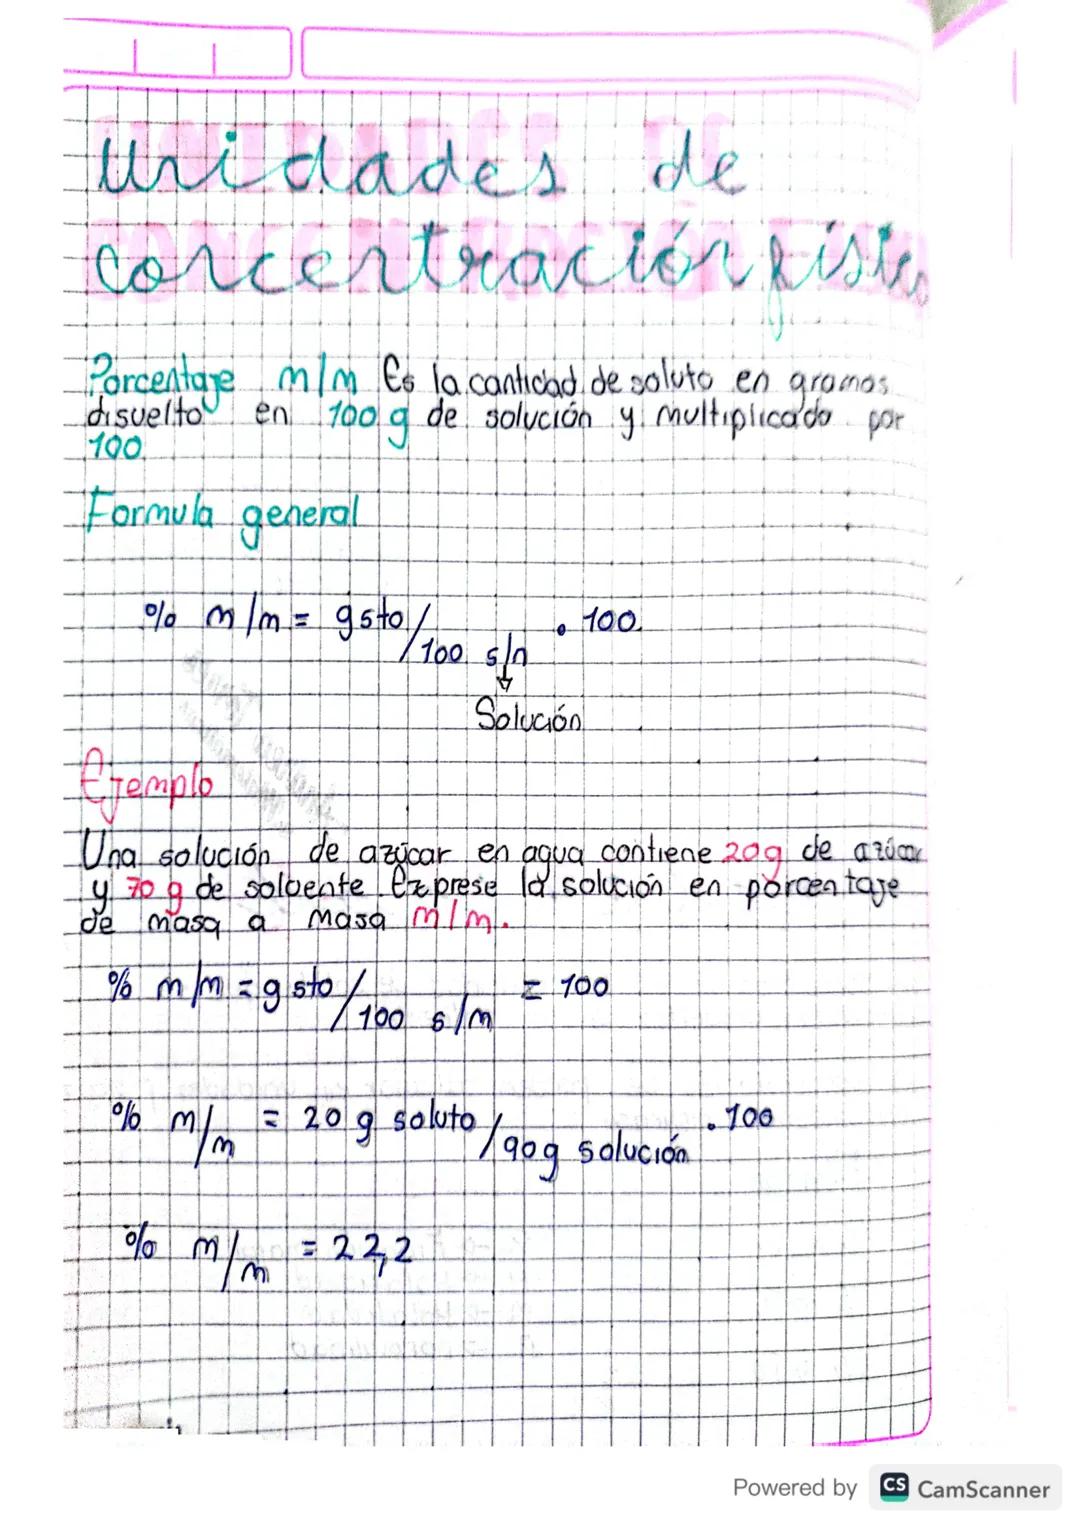 Unidades de
concentración físicas
Porcentaje m/m Es la cantidad de soluto en gramos
disuelto en 100 g de solución y multiplicado por
100.
Formula general
% m/m = g sto/100 s/n . 100
Solución
Ejemplo
Una solución de azúcar en agua contiene 20g de azúcar
y 70 g de solvente Exprese la solución en porcentaje
de masa a masa m/m.
% m/m = g sto/100 s/m = 100
% m/m = 20 g soluto/90g solución . 100
% m/m = 22,2
Powered by CS CamScanner